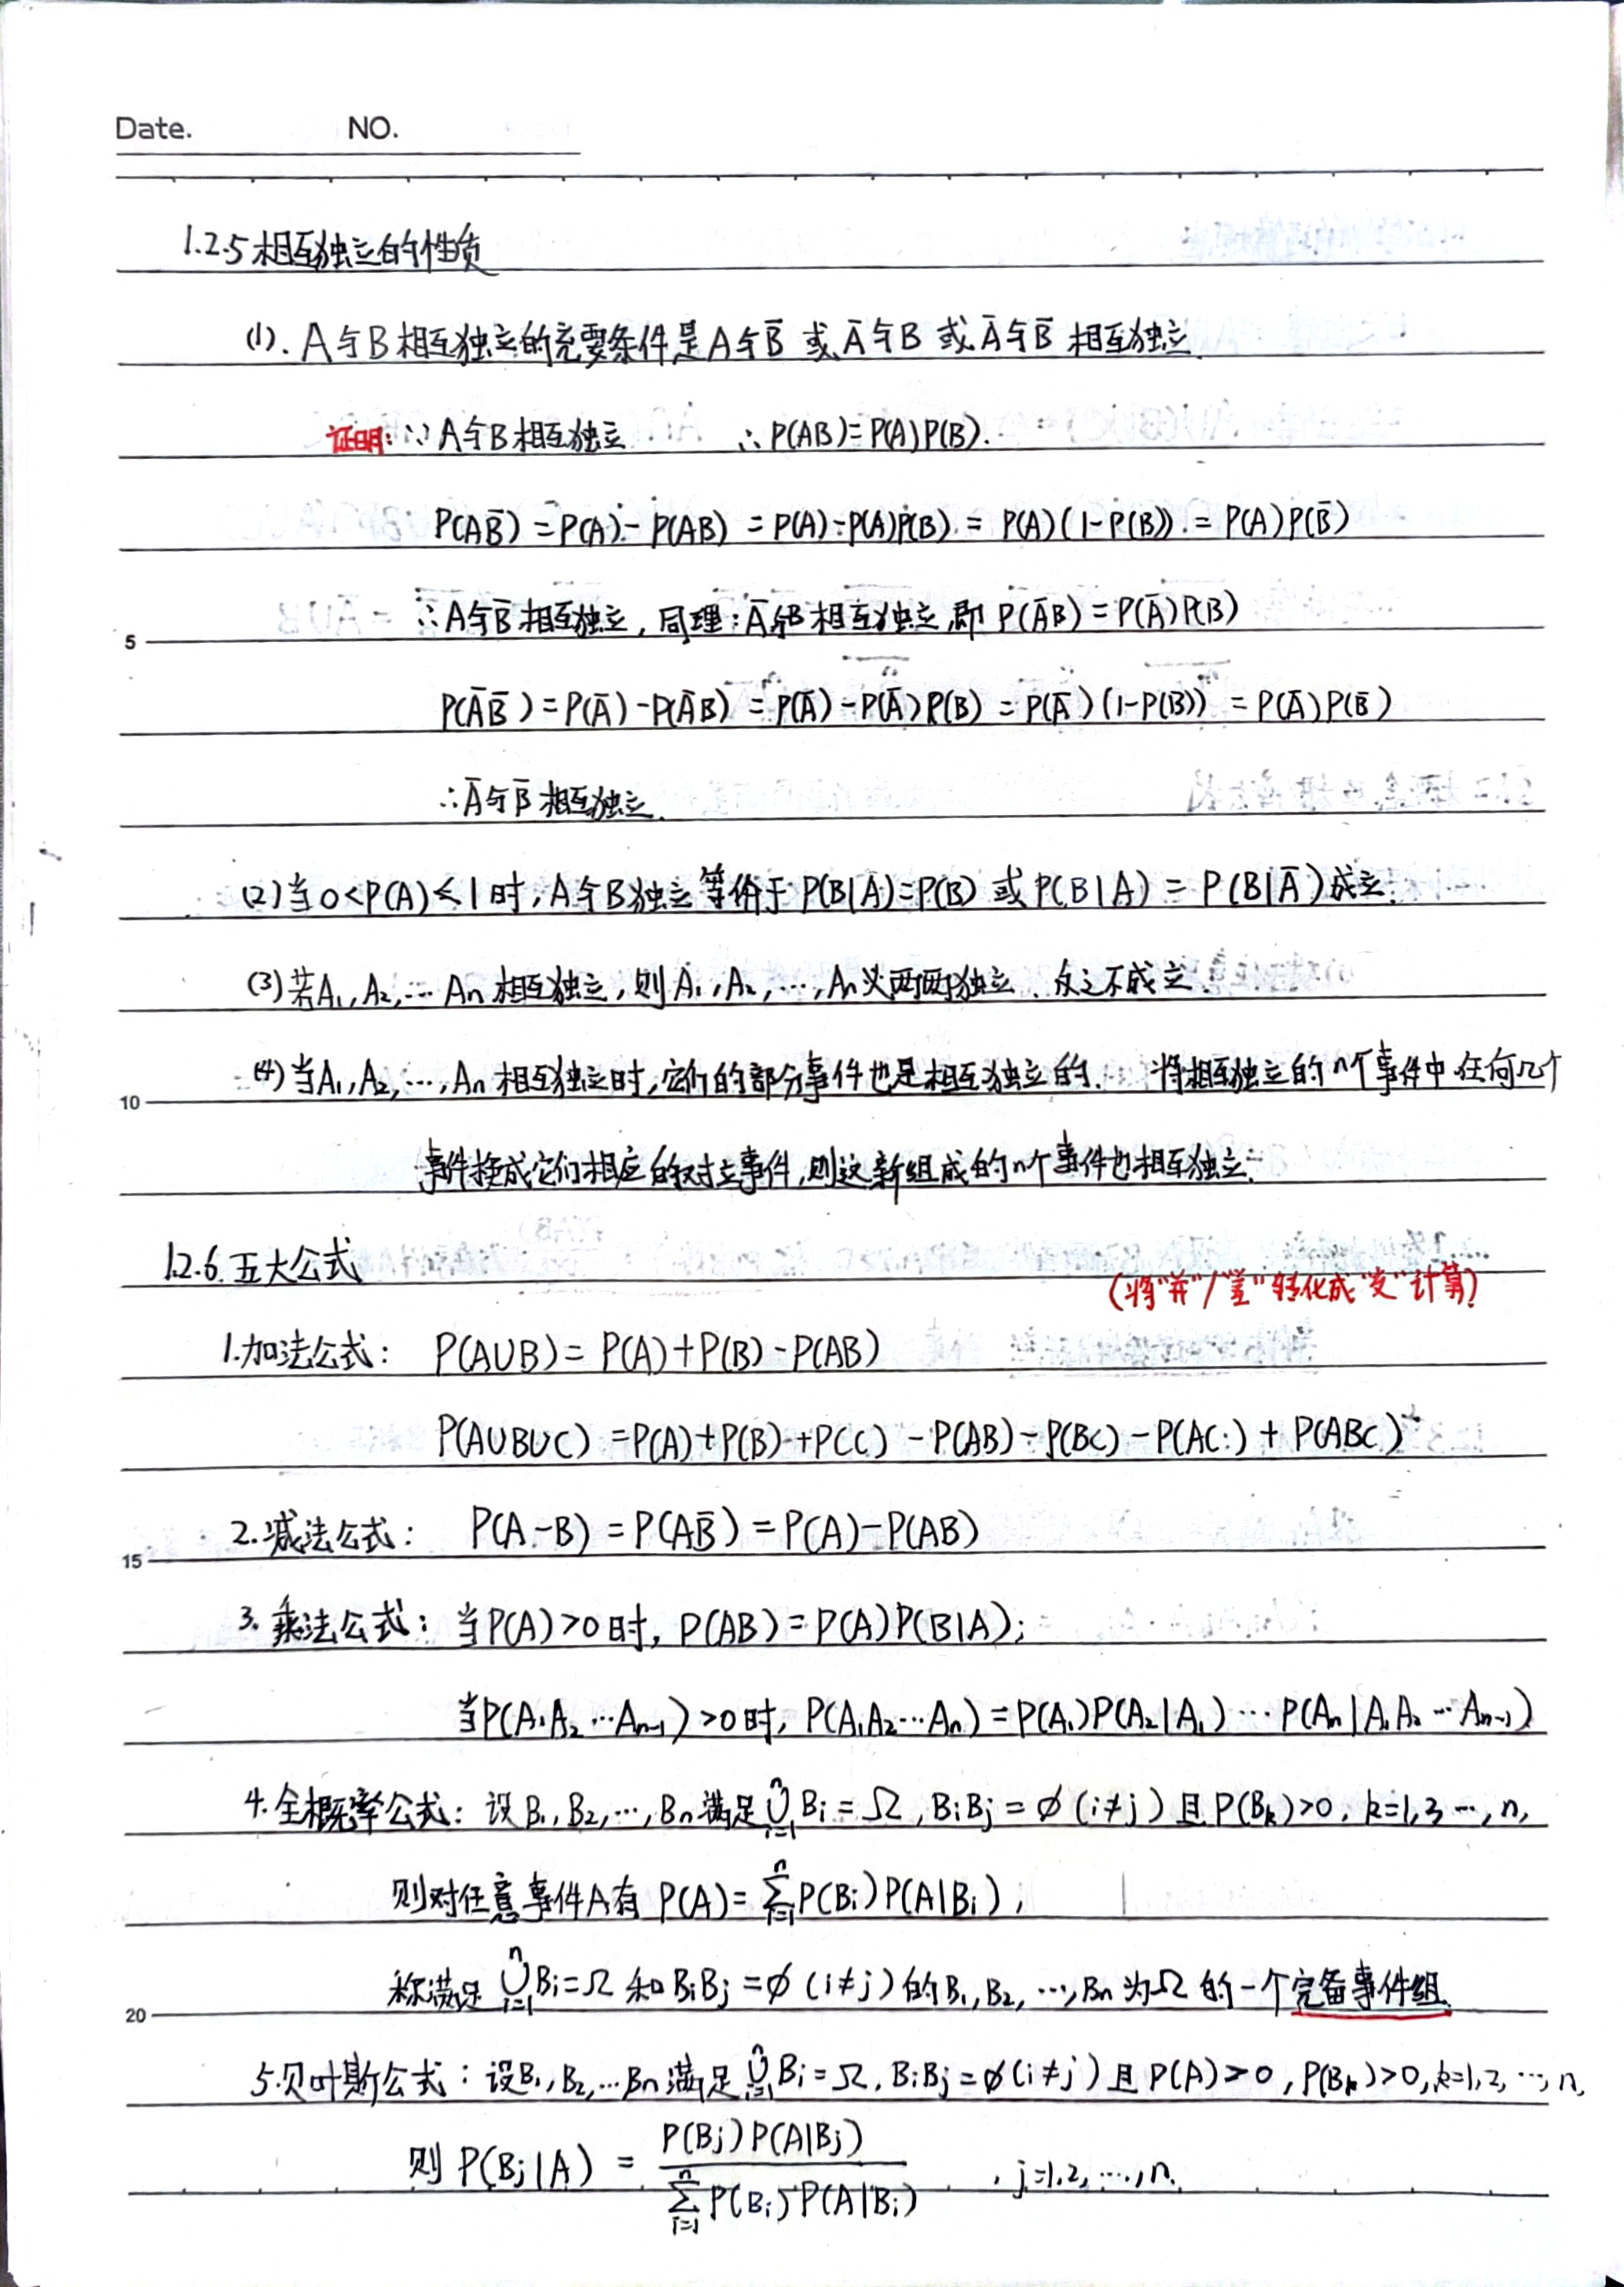 Date. NO.
1.2.5 相互独立的性质
(1). A与B相互独立的充要条件是A与B̄ 或Ā与B 或Ā与B̄ 相互独立.
证明: ∵ A与B相互独立 ∴ P(AB)=P(A)P(B).
P(AB̄) = P(A) - P(AB) = P(A) - P(A)P(B) = P(A)(1-P(B)) = P(A)P(B̄)
5 ∴ A与B̄相互独立, 同理: Ā与B相互独立, 即 P(ĀB) = P(Ā)P(B)
P(ĀB̄) = P(Ā) - P(ĀB) = P(Ā) - P(Ā)P(B) = P(Ā)(1-P(B)) = P(Ā)P(B̄)
∴ Ā与B̄相互独立.
(2) 当0<P(A)≤1时, A与B独立等价于 P(B|A)=P(B) 或 P(B|A) = P(B|Ā)成立.
(3) 若A₁, A₂, … Aₙ 相互独立, 则A₁, A₂, …, Aₙ必两两独立. 反之不成立.
10 (4) 当A₁, A₂, …, Aₙ 相互独立时, 它们的部分事件也是相互独立的. 将相互独立的n个事件中任何几个
事件换成它们相应的对立事件, 则这新组成的n个事件也相互独立.
1.2.6. 五大公式
(将"并"/"差"转化成"交"计算)
1.加法公式: P(A∪B) = P(A)+P(B)-P(AB)
P(A∪B∪C) = P(A)+P(B)+P(C) - P(AB) - P(BC) - P(AC) + P(ABC)
15 2.减法公式: P(A-B) = P(AB̄) = P(A)-P(AB)
3. 乘法公式: 当P(A)>0时, P(AB) = P(A)P(B|A);
当P(A₁A₂…Aₙ₋₁)>0时, P(A₁A₂…Aₙ) = P(A₁)P(A₂|A₁)…P(Aₙ|A₁A₂…Aₙ₋₁)
4. 全概率公式: 设 B₁, B₂, …, Bₙ 满足 ⋃ⁿᵢ₌₁ Bᵢ = Ω, BᵢBⱼ = ∅ (i≠j) 且 P(Bₖ)>0, k=1,3 …, n,
则对任意事件A有 P(A) = ∑ⁿᵢ₌₁ P(Bᵢ)P(A|Bᵢ),
20 称满足 ⋃ⁿᵢ₌₁ Bᵢ=Ω 和 BᵢBⱼ=∅ (i≠j) 的 B₁, B₂, …, Bₙ 为Ω 的一个完备事件组.
5.贝叶斯公式: 设B₁, B₂, … Bₙ 满足 ⋃ⁿᵢ₌₁ Bᵢ = Ω, BᵢBⱼ = ∅(i≠j) 且 P(A)>0, P(Bₖ)>0, k=1,2, …, n,
则 P(Bⱼ|A) = P(Bⱼ)P(A|Bⱼ) / ∑ⁿᵢ₌₁ P(Bᵢ)P(A|Bᵢ) , j=1,2, …, n.